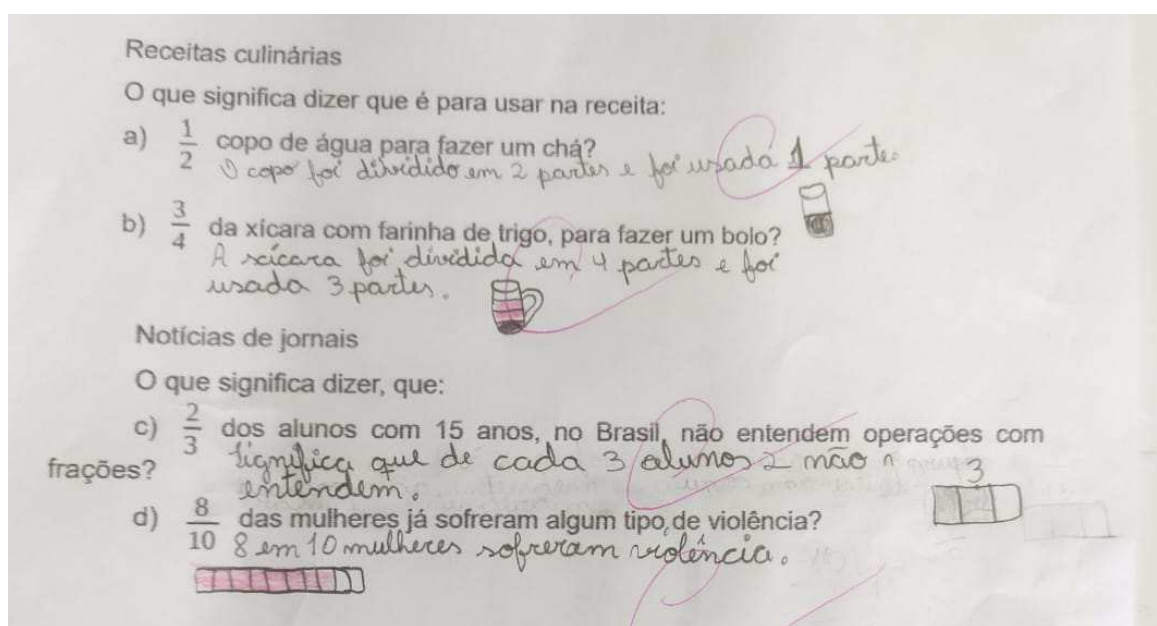 Receitas culinárias
O que significa dizer que é para usar na receita:
a) 1/2 copo de água para fazer um chá?
O copo foi dividido em 2 partes e foi usada 1 parte.
b) 3/4 da xícara com farinha de trigo, para fazer um bolo?
A xícara foi dividida em 4 partes e foi
usada 3 partes.
Notícias de jornais
O que significa dizer, que:
c) 2/3 dos alunos com 15 anos, no Brasil, não entendem operações com
frações? Significa que de cada 3 alunos 2 não
entendem.
3
d) 8/10 das mulheres já sofreram algum tipo de violência?
8 em 10 mulheres sofreram violência.